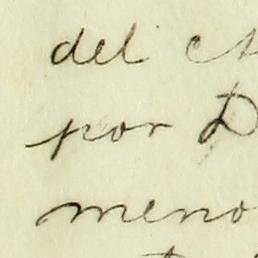 del
por D
meno